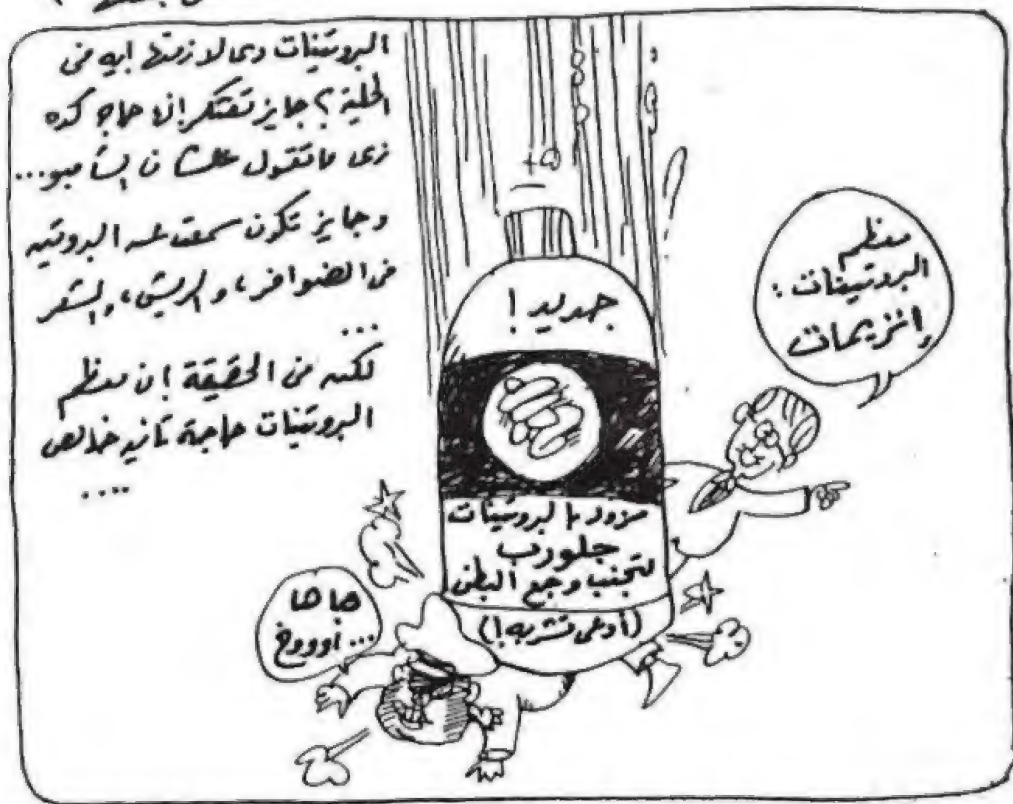 البروتينات دى لازمتها ايه فى
الخلية؟ جايز تفتكر إنها حاجة كده
زى ما تقول علشان الشامبو...
وجايز تكون سمعت عن البروتين
فى الضوافر، والريش، والشعر
...
لكن فى الحقيقة إن معظم
البروتينات حاجة تانيه خالص
....
معظم
البروتينات:
إنزيمات
جديد!
مزود بالبروتينات
جلورب
لتجنب وجع البطن
(أوعى تشربه!)
هاها
...أوووخ